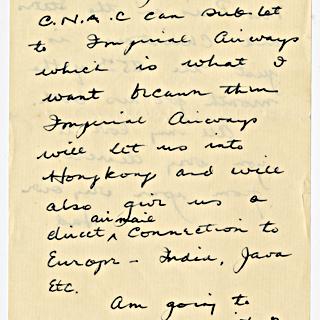 C.N.A.C can sub-let
to Imperial Airways
which is what I
want because then
Imperial Airways
will let us into
Hongkong and will
also give us a
direct airmail connection to
Europe - India, Java
Etc.
Am going to